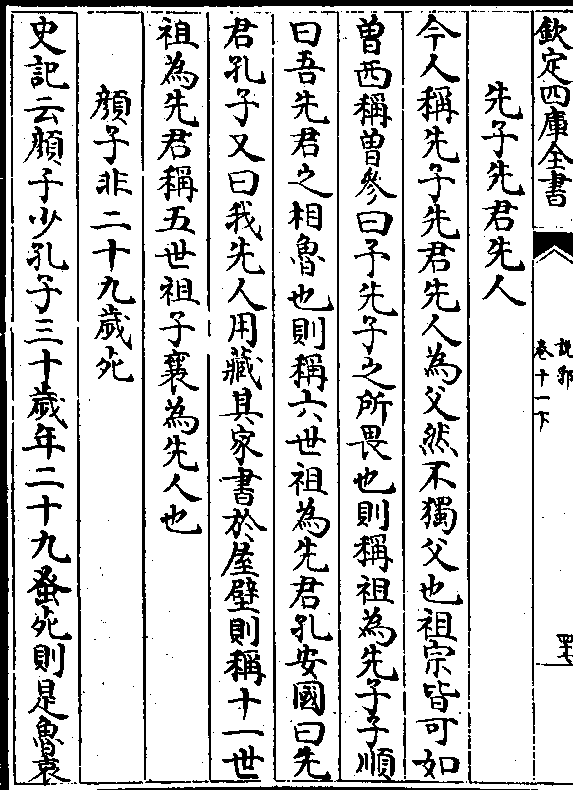 欽定四庫全書
說郛
卷十一下
先子先君先人
今人稱先子先君先人為父然不獨父也祖宗皆可如
曽西稱曽參曰予先子之所畏也則稱祖為先子子順
曰吾先君之相魯也則稱六世祖為先君孔安國曰先
君孔子又曰我先人用藏其家書於屋壁則稱十一世
祖為先君稱五世祖子襄為先人也
顔子非二十九歲死
史記云顔子少孔子三十歲年二十九蚤死則是魯哀